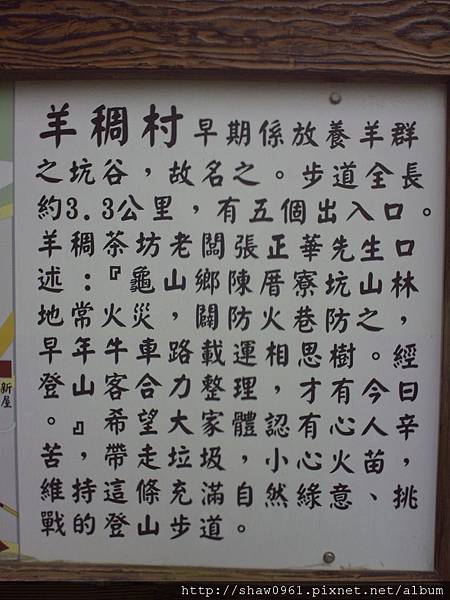 羊稠村早期係放養羊群
之坑谷，故名之。步道全長
約3.3公里，有五個出入口。
羊稠茶坊老闆張正華先生口
述：『龜山鄉陳厝寮坑山林
地常火災，闢防火巷防之，
早年牛車路載運相思樹。經
登山客合力整理，才有今日
。』希望大家體認有心人辛
苦，帶走垃圾，小心火苗，
維持這條充滿自然綠意、挑
戰的登山步道。
新屋
http://shaw0961.pixnet.net/album